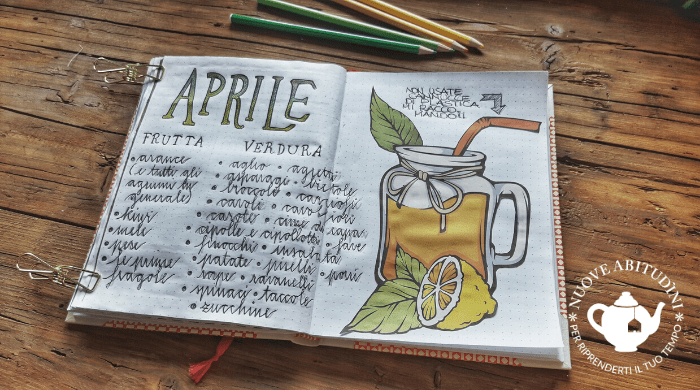 APRILE
FRUTTA
• arance
(e tutti gli
agrumi in
generale)
• kiwi
• mele
• pere
• le prime
fragole
VERDURA
• aglio • agretti
• asparagi • bietole
• broccolo • carciofi
• cavoli • cavolfiori
• carote • cime di rapa
• cipolle e cipollotti • fave
• finocchi • insalata
• patate • piselli • porri
• rape • ravanelli
• spinaci • taccole
• zucchine
NON USATE
CANNUCCE
DI PLASTICA
MI RACCO
MANDO!!
NUOVE ABITUDINI
PER RIPRENDERTI IL TUO TEMPO